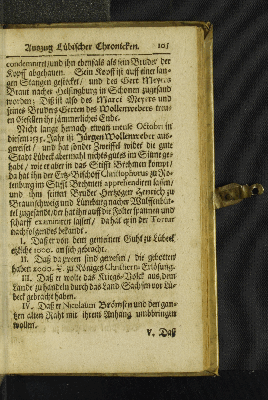 Auszug Lübischer Chronicken. 105
condemniret / und ihn ebenfals als sein Bruder der
Kopff abgehauen. Sein Kopff ist auff einer lan-
gen Stangen gestecket / und des Gert Meyers
Braut nacher Helsingburg in Schonen zugesand
worden: Diß ist also des Marci Meyers und
seines Bruders Gerten des Wollenwebers treu-
en Gesellen ihr jämmerliches Ende.
Nicht lange hernach etwan medio Octobr. in
diesem 1535. Jahr ist Jürgen Wollenweber auß-
gereiset / und hat sonder Zweiffel wider die gute
Stadt Lübeck abermahl nichts gutes im Sinne ge-
habt / wie er aber in das Stifft Brehmen kompt /
da hat ihn der Ertz-Bischoff Christophorus zu Ro-
tenburg im Stifft Brehmen apprehendiren lassen /
und ihm seinem Bruder Hertzogen Henrich zu
Braunschweig und Lüneburg nacher Wulffenbüt-
tel zugesandt / der hat ihn auff die Folter spannen und
scharff examiniren lassen / da hat er in der Tortur
nachfolgendes bekandt.
I. Daß er von dem gemeinen Guht zu Lübeck
etzliche 1000. an sich gebracht.
II. Daß da zween sind gewesen / die gebotten
haben 2000. zu Königes Christiern Erlösung.
III. Daß er wolte das Kriegs-Volck aus dem
Lande zu handeln durch das Land Sachsen vor Lü-
beck gebracht haben.
IV. Daß er Nicolaum Brömsen und den gan-
tzen alten Raht mit ihrem Anhang umbbringen
wollen.
V. Daß